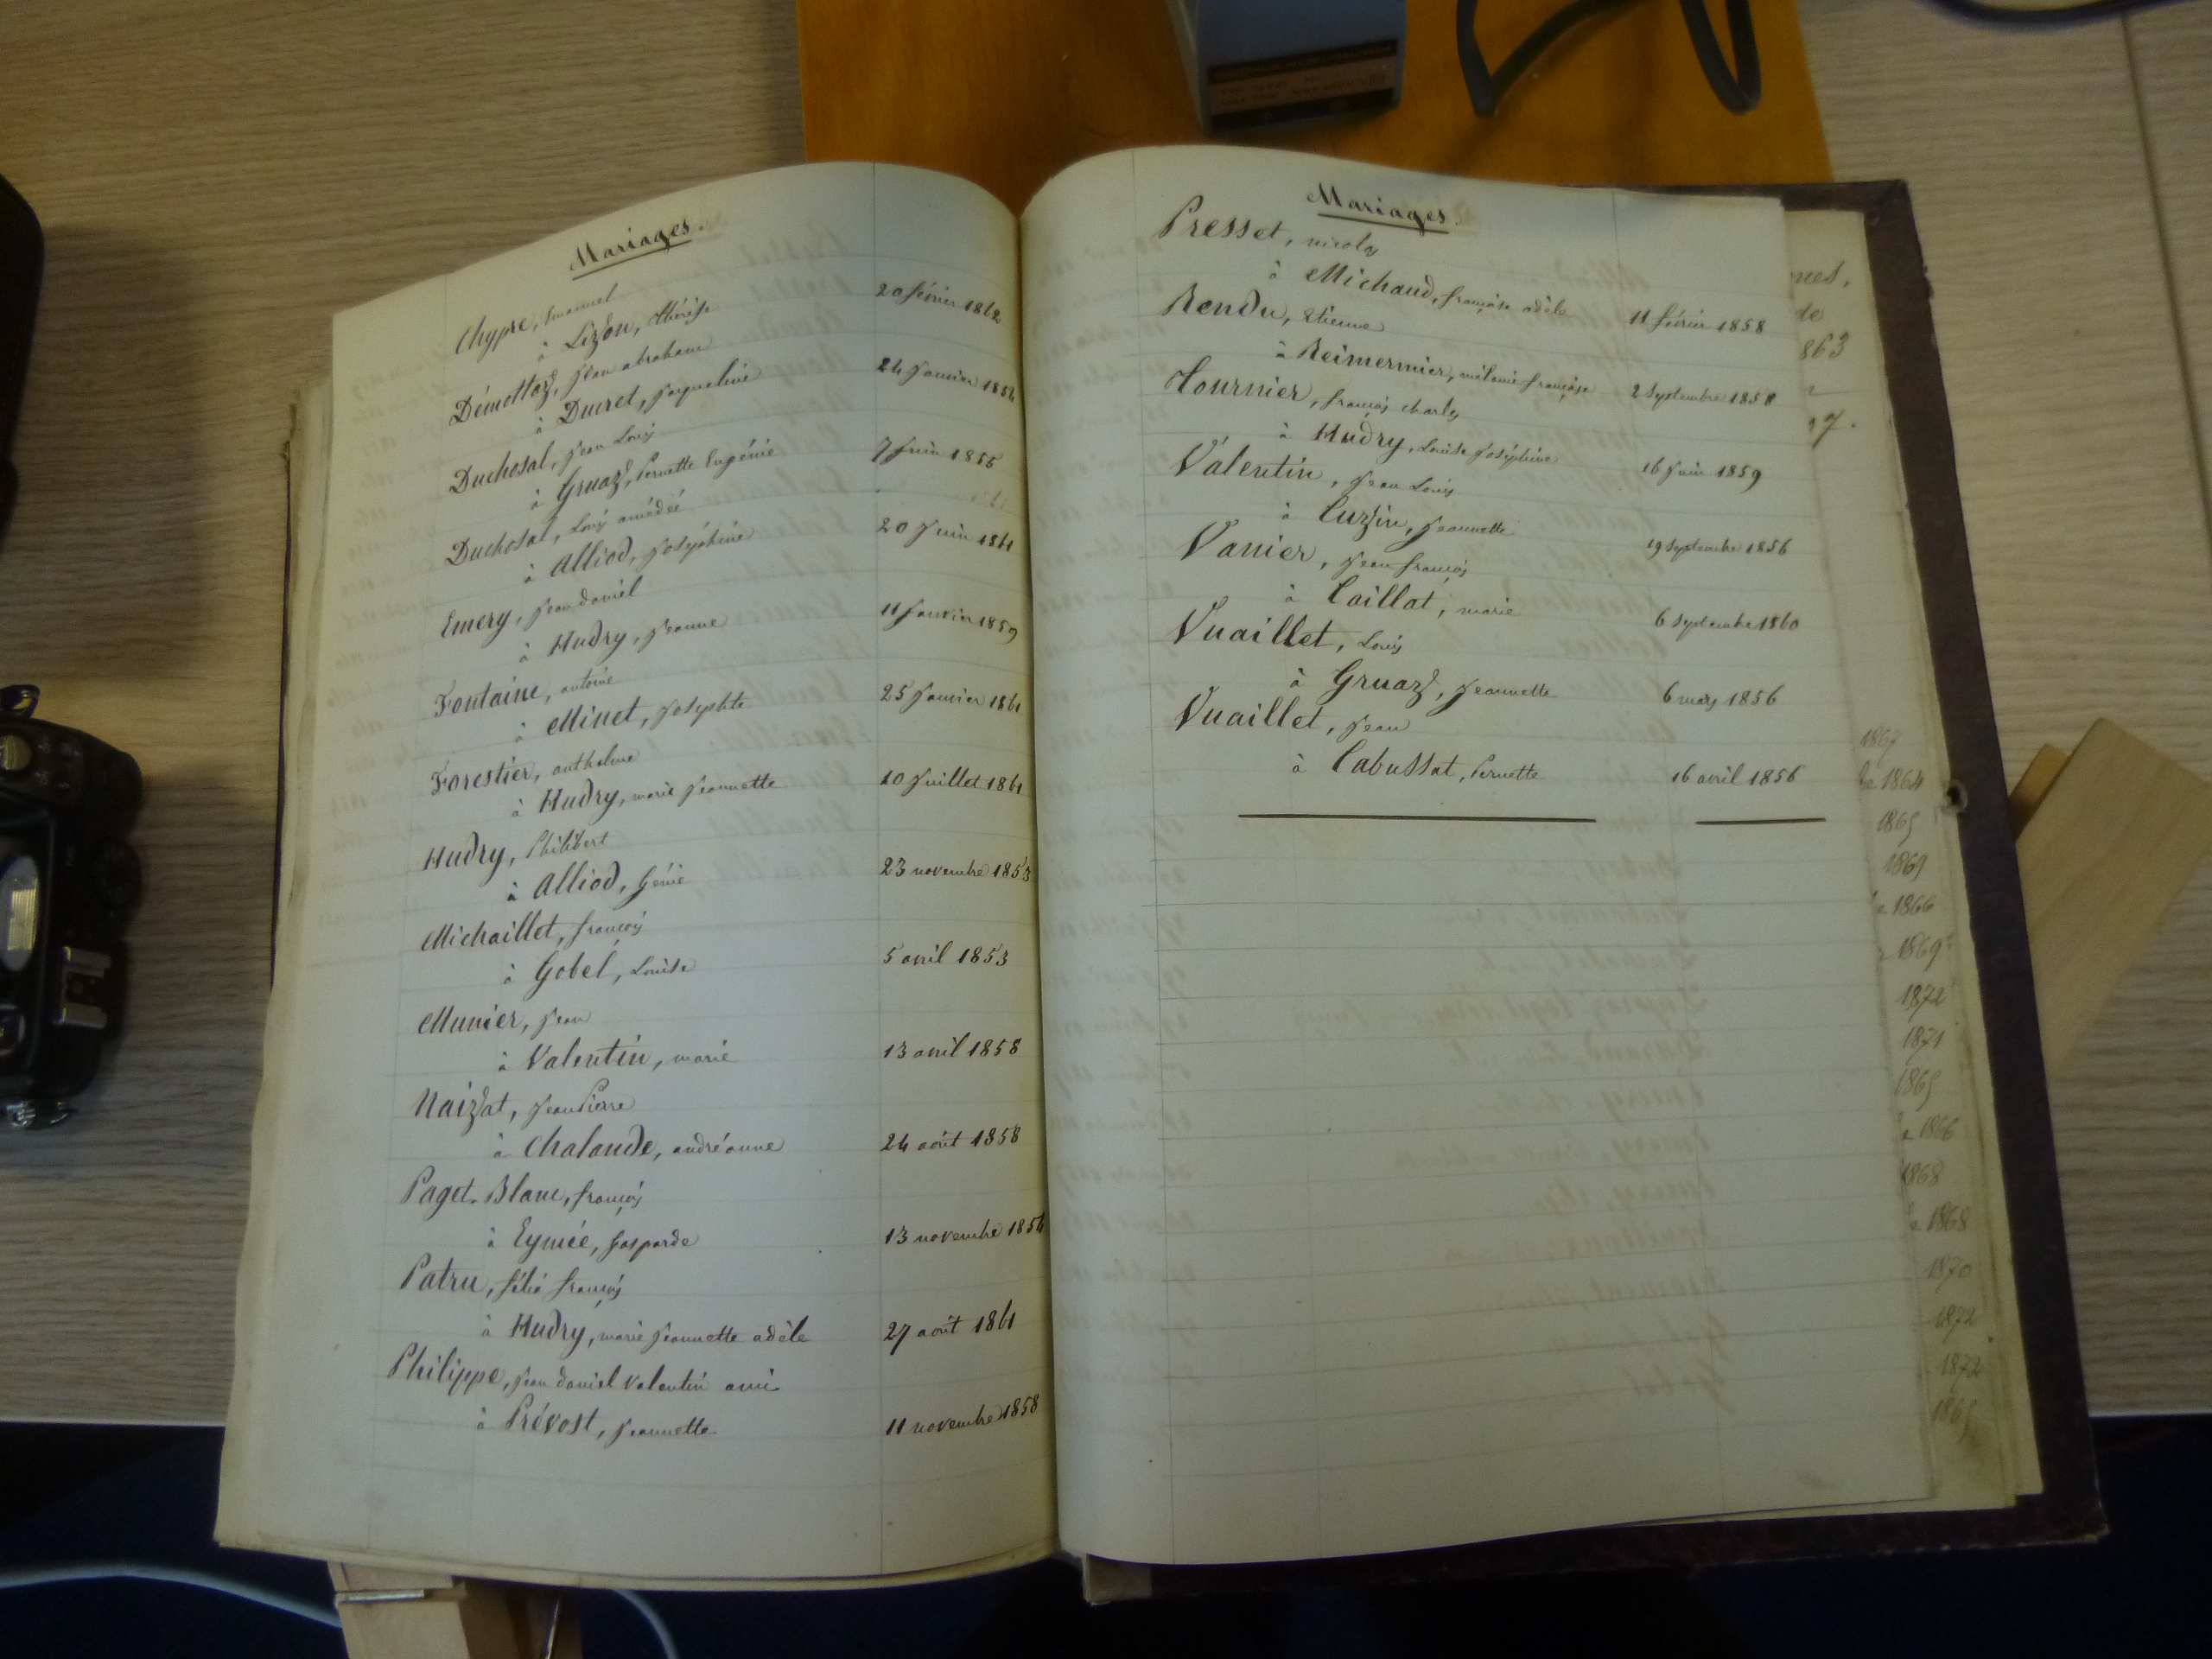 Mariages.
Chypre, Emanuel
à Lizon, thérèse 20 février 1862
Démottaz, jean abraham
à Ducret, jaqueline 24 janvier 1854
Duchosal, jean Louis
à Gruaz, Pernette Eugénie 7 juin 1855
Duchosal, Louis amédéé
à Alliod, joséphine 20 juin 1861
Emery, jean daniel
à Hudry, jeanne 11 janvier 1859
Fontaine, antoine
à Minet, josephte 25 janvier 1861
Forestier, anthelme
à Hudry, marie jeannette 10 juillet 1861
Hudry, Philibert
à Alliod, Génie 23 novembre 1853
Michaillet, françois
à Gobel, Louise 5 avril 1853
Munier, jean
à Valentin, marie 13 avril 1858
Naizat, jean Pierre
à Chalande, andréanne 24 août 1858
Paget-Blanc, françois
à Eymée, gasparde 13 novembre 1854
Patru, félix françois
à Hudry, marie jeannette adèle 27 août 1861
Philippe, jean daniel valentin ami
à Prévost, jeannette 11 novembre 1858
Mariages.
Presset, nicolas
à Michaud, françoise adèle 11 février 1858
Rendu, Etienne
à Reimermier, mélanie françoise 2 Septembre 1858
Tournier, françois charles
à Hudry, Louise joséphine 16 juin 1859
Valentin, jean Louis
à Cuzin, jeannette 19 Septembre 1856
Vanier, jean françois
à Caillat, marie 6 Septembre 1860
Vuaillet, Louis
à Gruaz, jeannette 6 mars 1856
Vuaillet, jean
à Cabussat, Pernette 16 avril 1856
de
1864
1866
1872
1871
1868
1868
1870
1872
1872